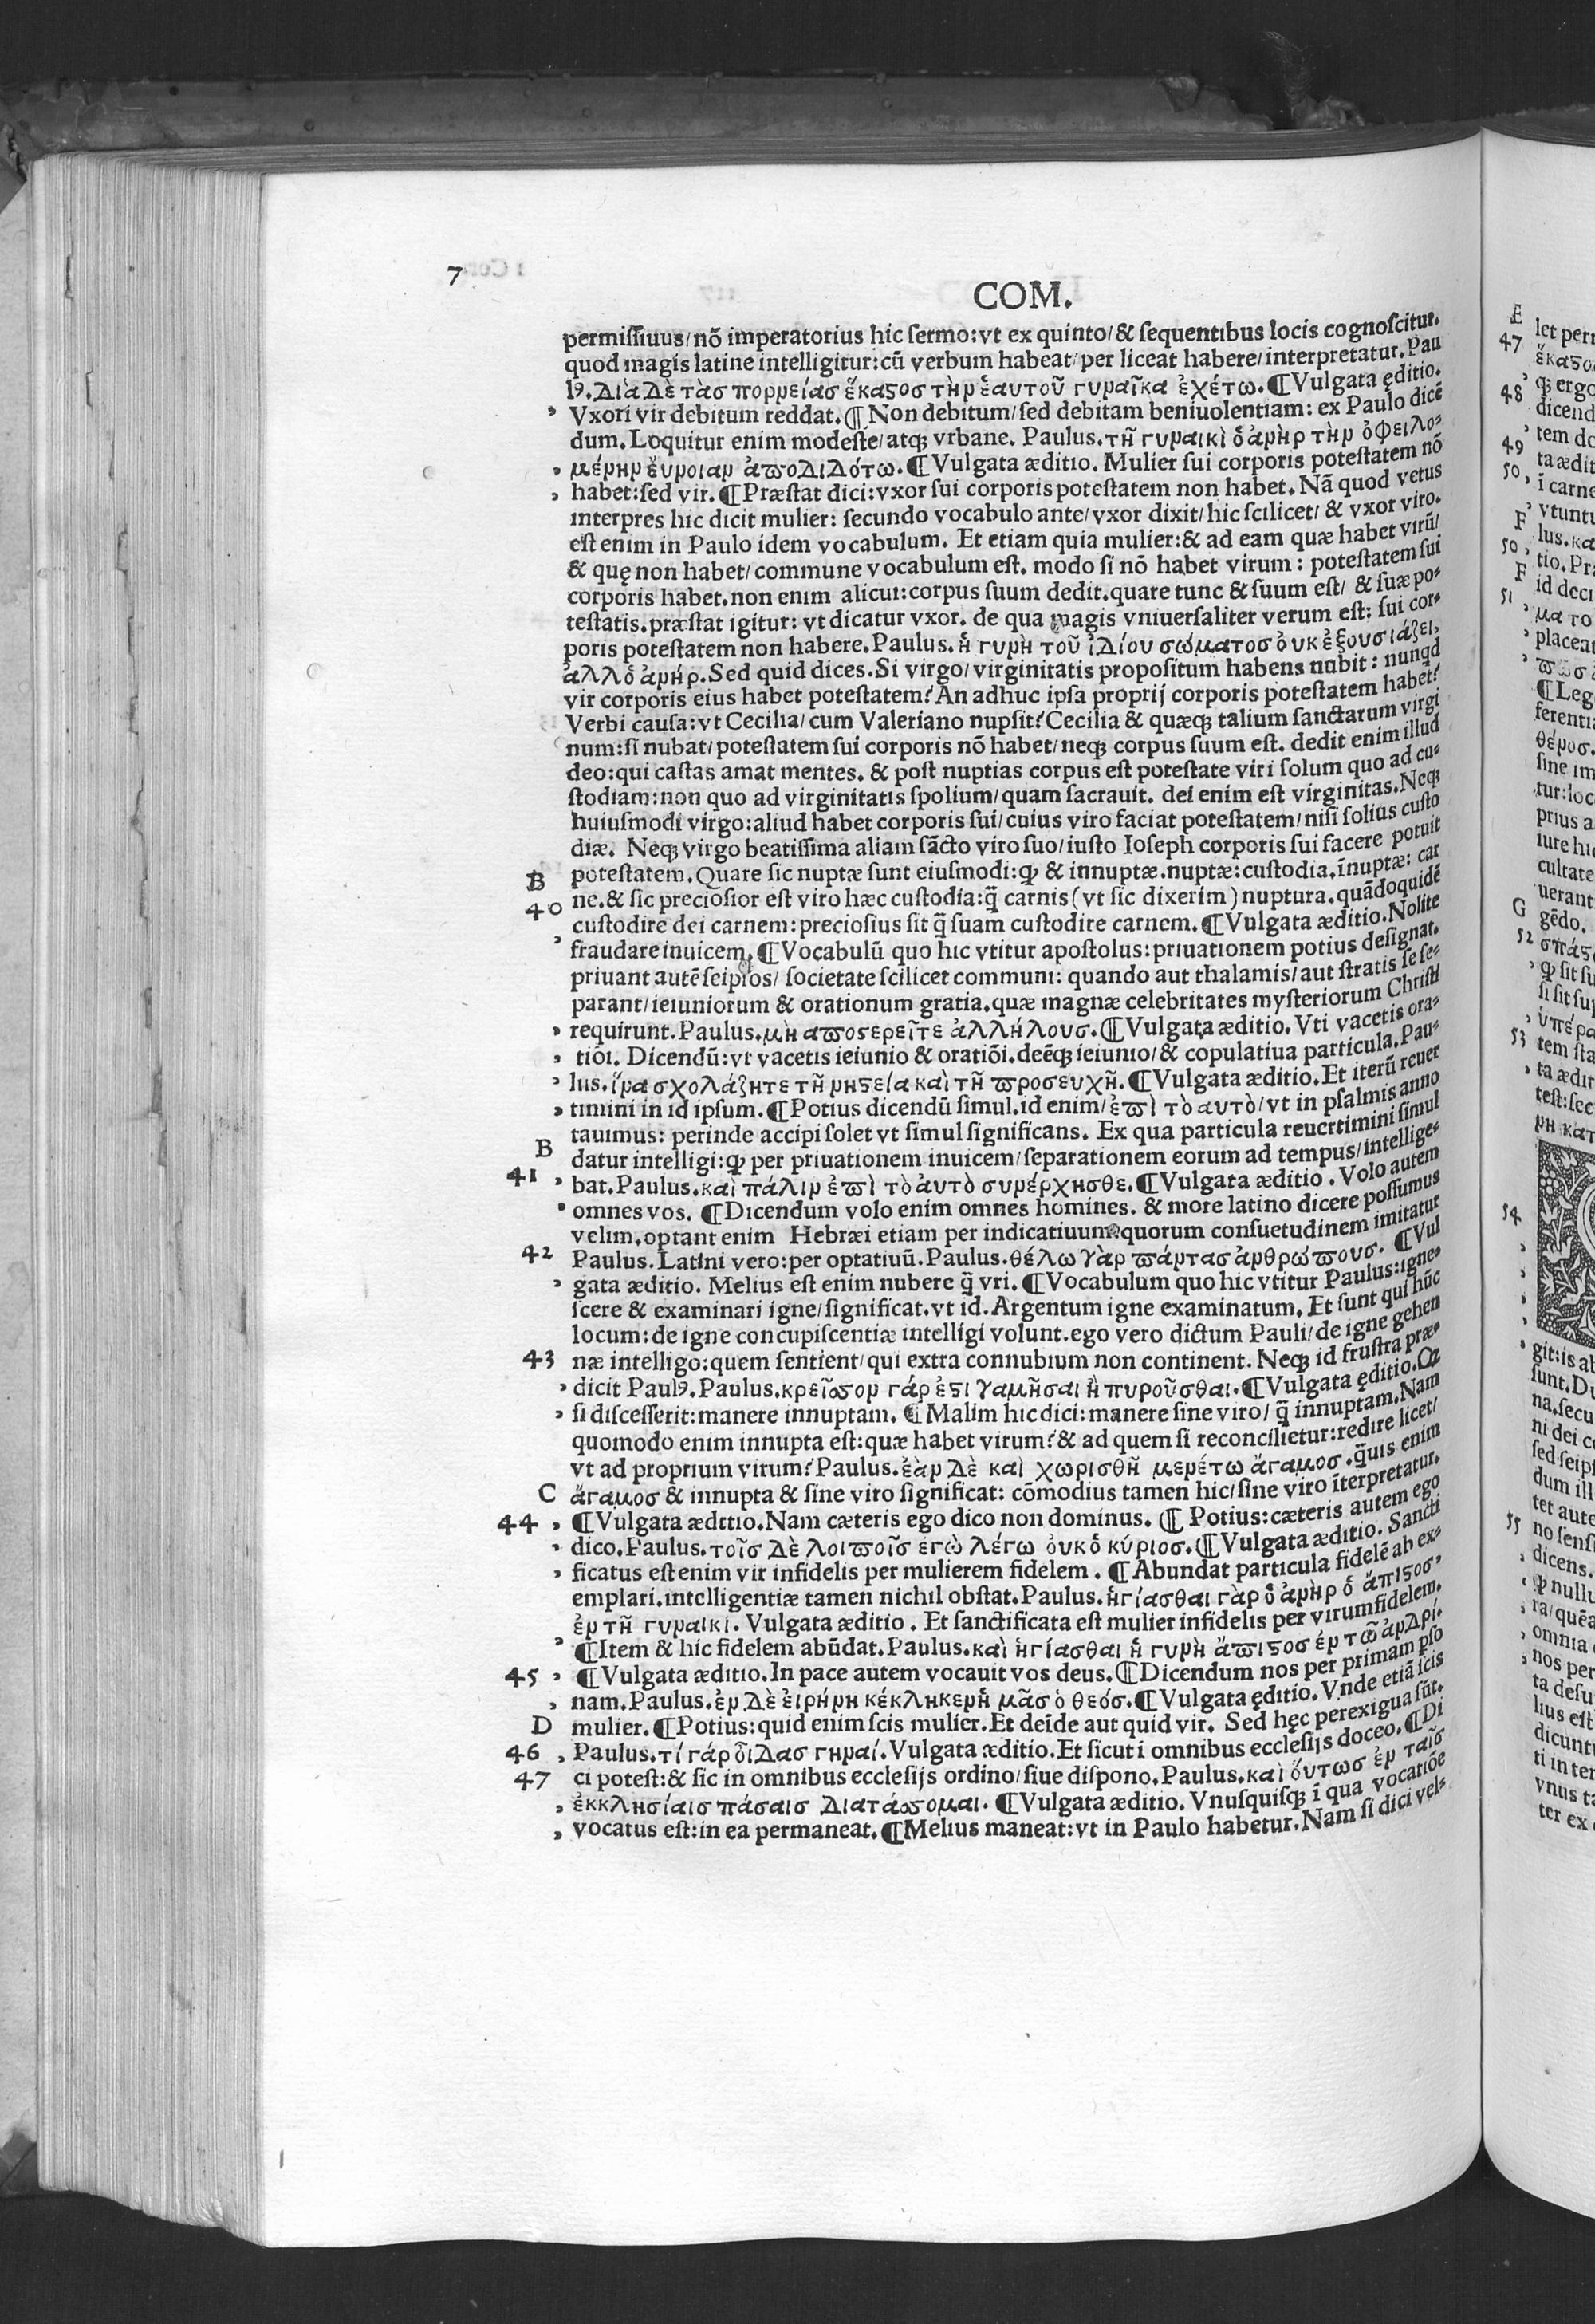 7
COM.
permissiuus/nõ imperatorius hic sermo:vt ex quinto/& sequentibus locis cognoscitur.
quod magis latine intelligitur:cũ verbum habeat/per liceat habere/interpretatur.Pau
lꝰ.Διὰ Δὲ τὰσ πορνείασ ἕκαϛοσ τὴν ἑαυτοῦ γυναῖκα ἐχέτω.¶Vulgata ęditio.
Vxori vir debitum reddat.¶Non debitum/sed debitam beniuolentiam: ex Paulo dicẽ
dum.Loquitur enim modeste/atqꝫ vrbane. Paulus.τῆ γυναικὶ ὁ ἀνὴρ τὴν ὀφειλο-
μένην ἔυνοιαν ἀποΔιΔότω.¶Vulgata æditio. Mulier sui corporis potestatem nõ
habet:sed vir.¶Præstat dici:vxor sui corporis potestatem non habet. Nã quod vetus
interpres hic dicit mulier: secundo vocabulo ante/vxor dixit/hic scilicet/ & vxor viro.
est enim in Paulo idem vocabulum. Et etiam quia mulier:& ad eam quæ habet virũ/
& quę non habet/commune vocabulum est. modo si nõ habet virum: potestatem sui
corporis habet.non enim alicui:corpus suum dedit.quare tunc & suum est/ & suæ po-
testatis.præstat igitur: vt dicatur vxor. de qua magis vniuersaliter verum est: sui cor-
poris potestatem non habere.Paulus.ἡ γυνὴ τοῦ ἰΔίου σώματοσ ὀυκ ἐξουσιάζει,
ἀλλὁ ἀνήρ.Sed quid dices.Si virgo/virginitatis propositum habens nubit: nunqd
vir corporis eius habet potestatem? An adhuc ipsa proprij corporis potestatem habet?
Verbi causa:vt Cecilia/cum Valeriano nupsit? Cecilia & quæqꝫ talium sanctarum virgi
num:si nubat/potestatem sui corporis nõ habet/neqꝫ corpus suum est. dedit enim illud
deo:qui castas amat mentes. & post nuptias corpus est potestate viri solum quo ad cu-
stodiam:non quo ad virginitatis spolium/quam sacrauit. dei enim est virginitas.Neqꝫ
huiusmodi virgo:aliud habet corporis sui/cuius viro faciat potestatem/nisi solius custo
diæ. Neqꝫ virgo beatissima aliam sãcto viro suo/iusto Ioseph corporis sui facere potuit
B potestatem.Quare sic nuptæ sunt eiusmodi:ꝙ & innuptæ.nuptæ:custodia.ĩnuptæ: car
40 ne.& sic preciosior est viro hæc custodia:q̃ carnis (vt sic dixerim) nuptura.quãdoquidẽ
custodire dei carnem:preciosius sit q̃ suam custodire carnem.¶Vulgata æditio.Nolite
fraudare inuicem.¶Vocabulũ quo hic vtitur apostolus:priuationem potius designat.
priuant autẽ seipsos/ societate scilicet communi: quando aut thalamis/aut stratis se se-
parant/ieiuniorum & orationum gratia.quæ magnæ celebritates mysteriorum Christi
requirunt.Paulus.μὴ αποϛερεῖτε ἀλλήλουσ.¶Vulgata æditio. Vti vacetis ora-
tiõi. Dicendũ:vt vacetis ieiunio & oratiõi.deẽqꝫ ieiunio/& copulatiua particula.Pau-
lus.ἵνα σχολάζητε τῆ νηϛεία καὶ τῆ προσευχῆ.¶Vulgata æditio.Et iterũ reuer
timini in id ipsum.¶Potius dicendũ simul.id enim/ἐπὶ τὸ αυτὸ/vt in psalmis anno
tauimus: perinde accipi solet vt simul significans. Ex qua particula reuertimini simul
B datur intelligi:ꝙ per priuationem inuicem/separationem eorum ad tempus/intellige-
41 bat.Paulus.καὶ πάλιν ἐπὶ τὸ ἀυτὸ συνέρχησθε.¶Vulgata æditio. Volo autem
omnes vos. ¶Dicendum volo enim omnes homines. & more latino dicere possumus
velim.optant enim Hebræi etiam per indicatiuum quorum consuetudinem imitatur
42 Paulus.Latini vero:per optatiuũ.Paulus.θέλω γὰρ πάντασ ἀνθρώπουσ. ¶Vul
gata æditio. Melius est enim nubere q̃ vri.¶Vocabulum quo hic vtitur Paulus:igne-
scere & examinari igne/significat.vt id.Argentum igne examinatum. Et sunt qui hũc
locum:de igne concupiscentiæ intelligi volunt.ego vero dictum Pauli/de igne gehen
43 næ intelligo:quem sentient/qui extra connubium non continent. Neqꝫ id frustra præ-
dicit Paulꝰ.Paulus.κρεῖσσον γάρ ἐϛι γαμῆσαι ἢ πυροῦσθαι.¶Vulgata ęditio.Qꝫ
si discesserit:manere innuptam.¶Malim hic dici:manere sine viro/ q̃ innuptam.Nam
quomodo enim innupta est:quæ habet virum?& ad quem si reconcilietur:redire licet/
vt ad proprium virum?Paulus.ἐὰν Δὲ καὶ χωρισθῆ μενέτω ἄγαμοσ.q̃uis enim
C ἄγαμοσ & innupta & sine viro significat: cõmodius tamen hic/sine viro ĩterpretatur.
44 ¶Vulgata æditio.Nam cæteris ego dico non dominus. ¶Potius:cæteris autem ego
dico.Paulus.τοῖσ Δὲ λοιποῖσ ἐγὼ λέγω ὀυκὁ κύριοσ.¶Vulgata æditio. Sancti
ficatus est enim vir infidelis per mulierem fidelem. ¶Abundat particula fidelẽ ab ex-
emplari.intelligentiæ tamen nichil obstat.Paulus.ἡγίασθαι γὰρ ὁ ἀνὴρ ὁ ἄπιϛοσ,
ἐν τῆ γυναικί. Vulgata æditio. Et sanctificata est mulier infidelis per virum fidelem.
¶Item & hic fidelem abũdat.Paulus.καὶ ἡγίασθαι ἡ γυνὴ ἄπιϛοσ ἐν τῶ ἀνΔρί.
45 ¶Vulgata æditio.In pace autem vocauit vos deus.¶Dicendum nos per primam pso
nam.Paulus.ἐν Δὲ ἐιρήνη κέκληκενἡ μᾶσ ὁ θεόσ.¶Vulgata ęditio.Vnde etiã scis
D mulier.¶Potius:quid enim scis mulier.Et deĩde aut quid vir. Sed hęc perexigua sũt.
46 Paulus.τί γάρ ὀῖΔασ γηναί.Vulgata æditio.Et sicut i omnibus ecclesijs doceo.¶Di
47 ci potest:& sic in omnibus ecclesijs ordino/siue dispono.Paulus.καὶ ὅυτωσ ἐν ταῖσ
ἐκκλησίαισ πάσαισ Διατάσσομαι. ¶Vulgata æditio. Vnusquisqꝫ ĩ qua vocatiõe
vocatus est:in ea permaneat.¶Melius maneat:vt in Paulo habetur.Nam si dici vel-